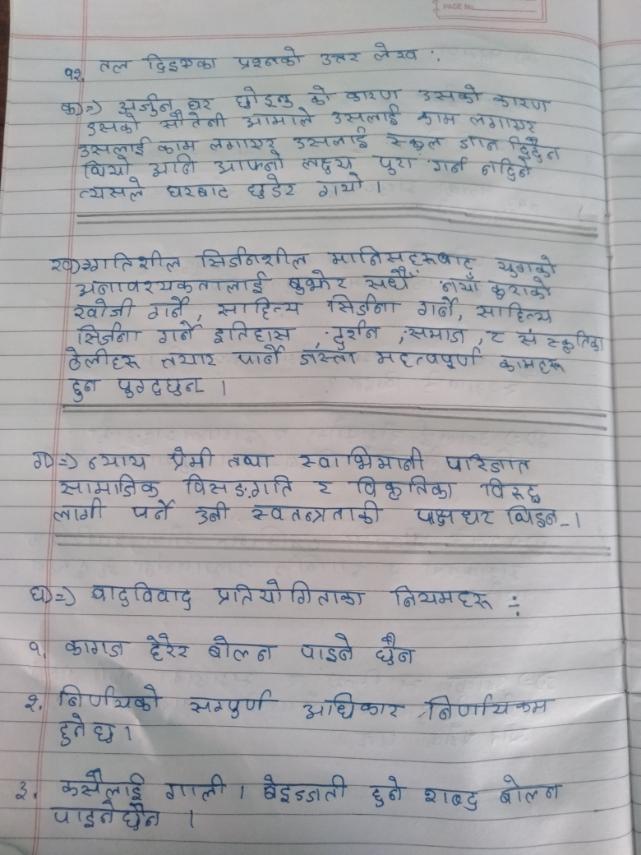 PAGE No.
१२. तल दिइएका प्रश्नको उत्तर लेख :
क) => अर्जुन घर छोड्नु को कारण उसको कारण
उसको सौतेनी आमाले उसलाई काम लगाएर
उसलाई काम लगाएर उसलाई स्कुल जान दिदैन
थियो अनि आफ्नो लक्ष्य पुरा गर्न नदिने
त्यसले घरबाट छुडेर गयो ।
ख) प्रगतिशील सिर्जनशील मानिसहरूबाट युगको
अनावश्यकतालाई बुझेर सधैँ नयाँ कुराको
खोजी गर्ने, साहित्य सिर्जना गर्ने, साहित्य
सिर्जना गर्ने इतिहास, दर्शन, समाज, र संस्कृतिका
ठेलीहरू तयार पार्ने जस्ता महत्वपूर्ण कामहरू
हुन पुग्दछन ।
ग) => न्याय प्रेमी तथा स्वाभिमानी पारिजात
सामाजिक विसङ्गति र विकृतिका विरुद्ध
लागी पर्ने उनी स्वतन्त्रताकी पक्षधर थिइन् ।
घ) => वादविवाद प्रतियोगिताका नियमहरू ÷
१. कागज हेरेर बोल्न पाइने छैन
२. निर्णयको सम्पुर्ण अधिकार निर्णायकम
हुने छ ।
३. कसैलाई गाली । बेइज्जती हुने शब्द बोल्न
पाइने छैन ।